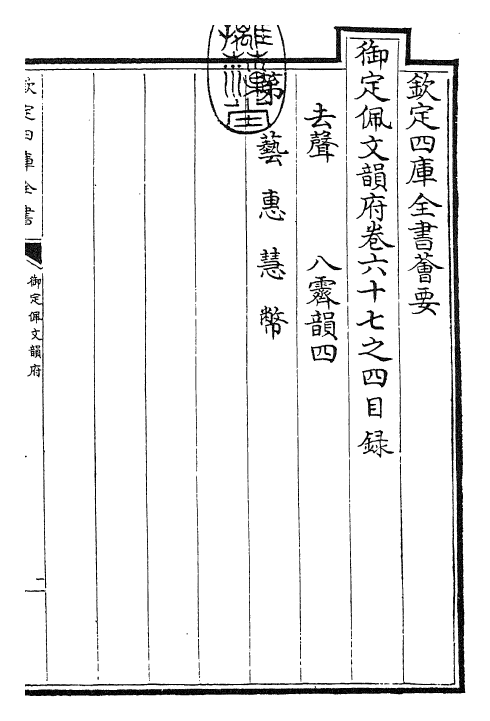 欽定四庫全書薈要
御定佩文韻府卷六十七之四目録
去聲 八霽韻四
第 藝 惠 慧 幣
欽定四庫全書
御定佩文韻府
一